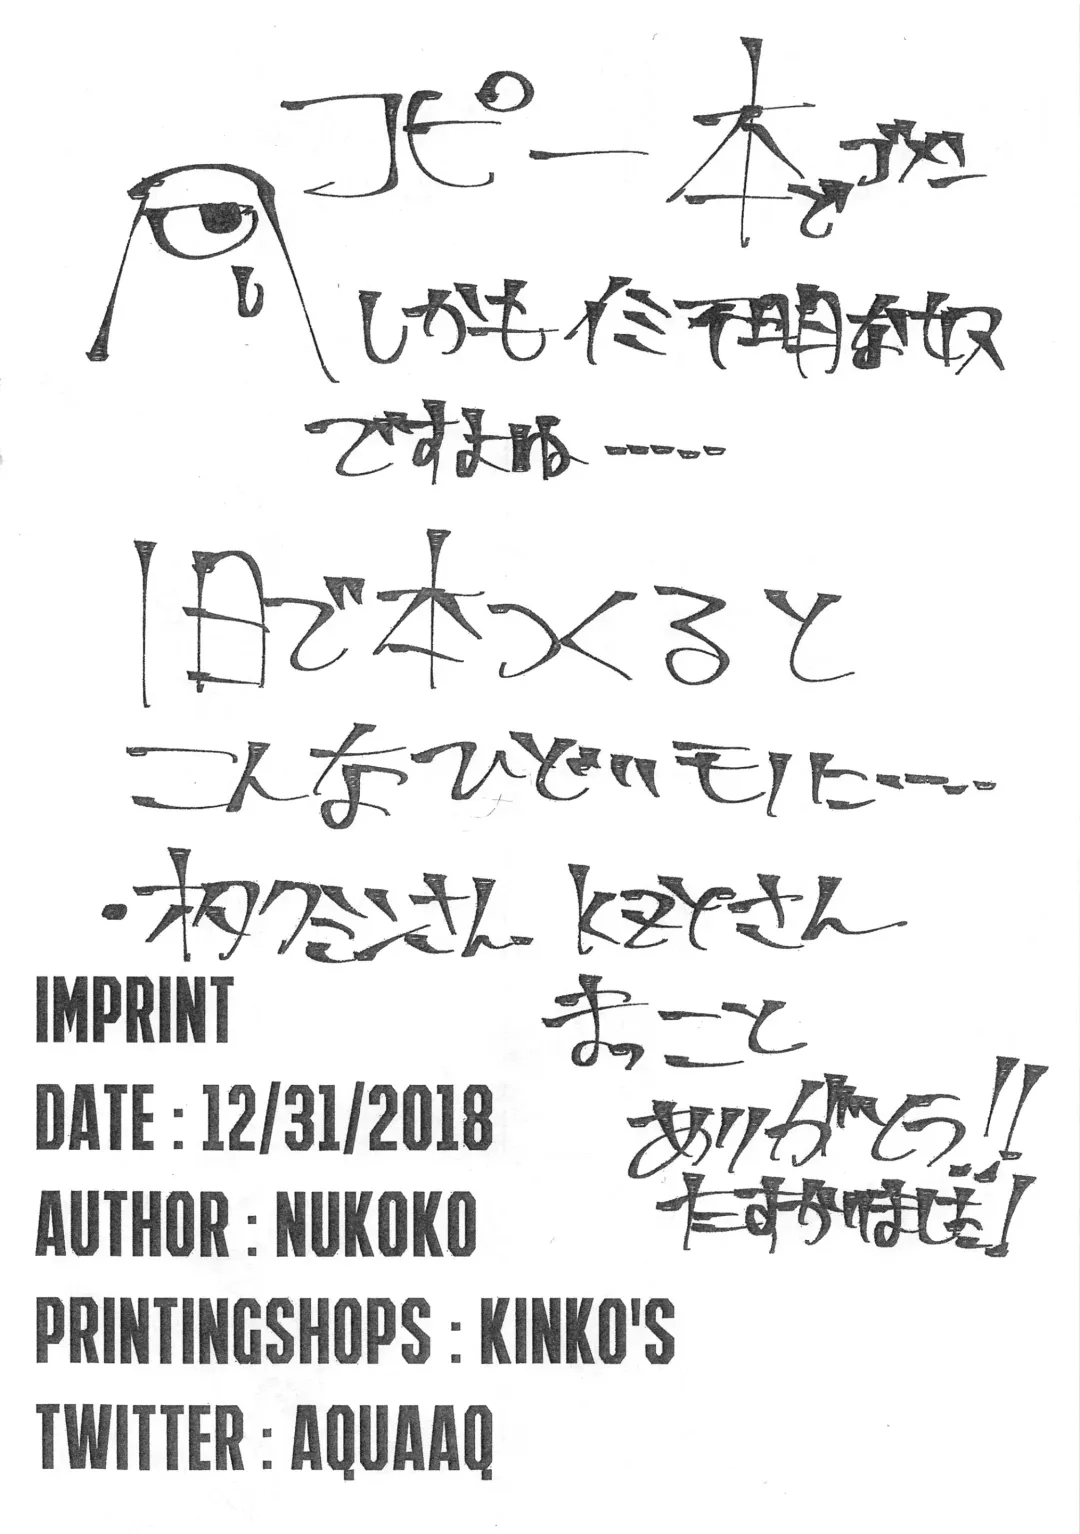 コピー本でゴメン
しかもイミ不明な奴
ですよね……
1日で本つくると
こんなひどいモノに……
・ネタクミンさん KZYさん
まっこと
ありがとう!!
たすかりました!
IMPRINT
DATE : 12/31/2018
AUTHOR : NUKOKO
PRINTINGSHOPS : KINKO'S
TWITTER : AQUAAQ